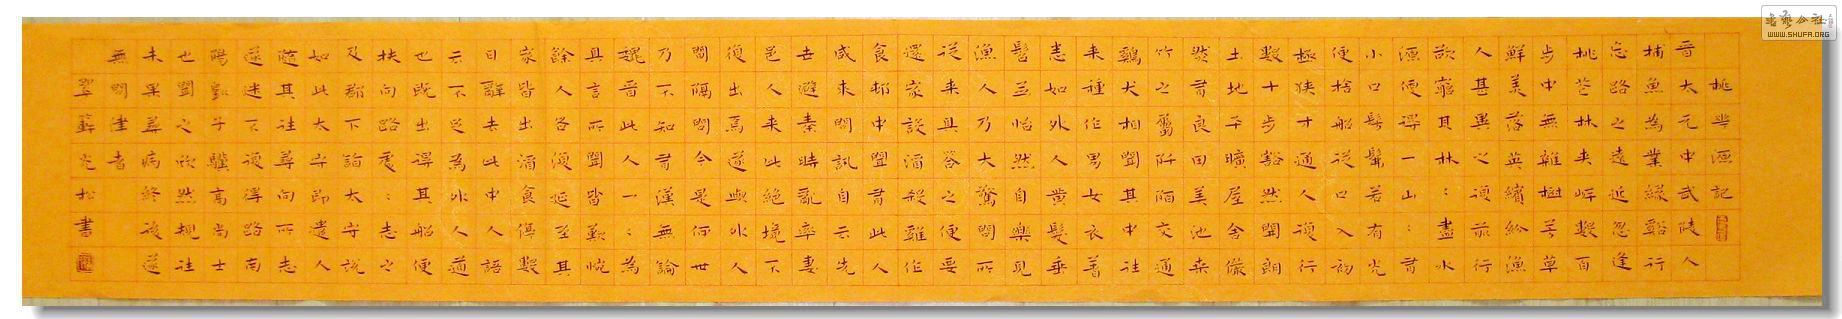 桃華源記
晉大元中武陵人
捕魚為業緣谿行
忘路之遠近忽逢
桃花林夾岸數百
步中無雜樹芳草
鮮美落英繽紛漁
人甚異之復前行
欲窮其林：盡水
源便得一山：有
小口髣髴若有光
便捨船從口入初
極狹才通人復行
數十步豁然開朗
土地平曠屋舍儼
然有良田美池桑
竹之屬阡陌交通
鷄犬相聞其中往
来種作男女衣著
悉如外人黄髮垂
髫並怡然自樂見
漁人乃大驚問所
從来具答之便要
還家設酒殺雞作
食邨中聞有此人
咸来問訊自云先
世避秦時亂率妻
邑人来此絕境不
復出焉遂與外人
間隔問今是何世
乃不知有漢無論
魏晉此人一：為
具言所聞皆歎惋
餘人各復延至其
家皆出酒食停數
日辭去此中人語
云不足為外人道
也既出得其船便
扶向路處：志之
及郡下詣太守說
如此太守即遣人
隨其往尋向所志
遂迷不復得路南
陽劉子驥高尚士
也聞之欣然規往
未果尋病終後遂
無問津者
松書
WWW.SHUFA.ORG